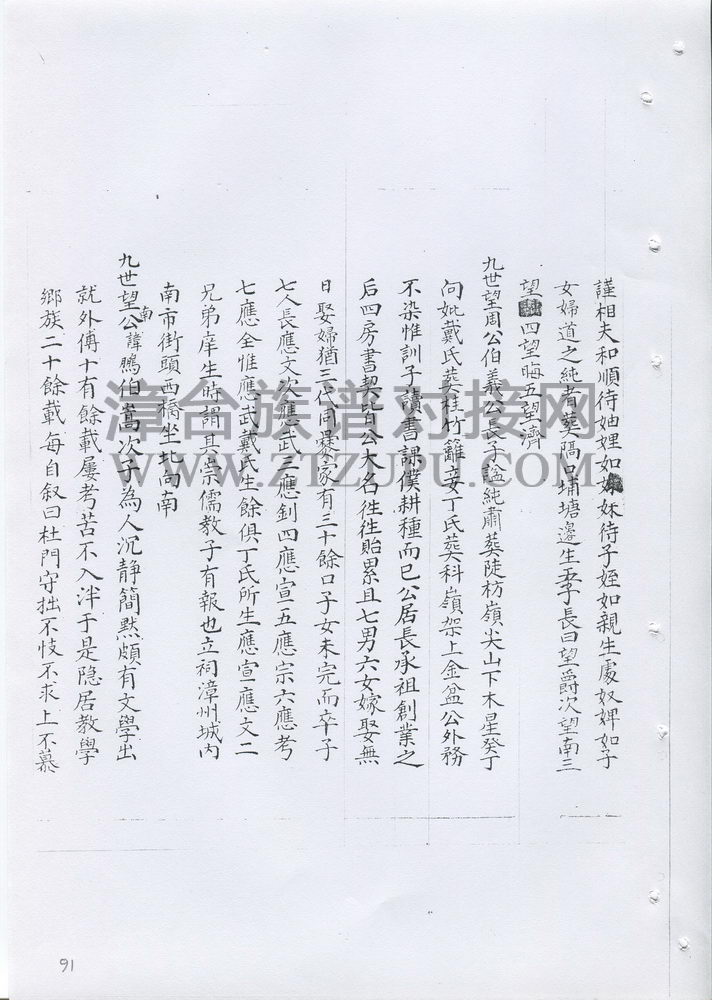 謹相夫和順待妯娌如妹待子姪如親生處奴婢如子
女婦道之純者葬隔口埔塘邊生五子長曰望爵次望南三
望 四望晦五望濟
九世望周公伯義公長子諡純肅葬陡枋嶺尖山下木星癸丁
向妣戴氏葬桂竹籬妾丁氏葬科嶺架上金盆公外務
不染惟訓子讀書課僕耕種而已公居長承祖創業之
后四房書契皆公大名徃徃貽累且七男六女嫁娶無
日娶婦猶三代同爨家有三十餘口子女未完而卒子
七人長應文次應武三應釗四應宣五應宗六應考
七應全惟應武戴氏生餘俱丁氏所生應宣應文二
兄弟庠生時謂其崇儒教子有報也立祠漳州城內
南市街頭西橋坐北向南
九世望南公諱鵬伯嵩次子為人沉静簡默頗有文學出
就外傅十有餘載屢考苦不入泮于是隐居教學
鄉族二十餘載每自叙曰杜門守拙不忮不求上不慕
漳台族谱对接网
WWW.ZTZUPU.COM
91